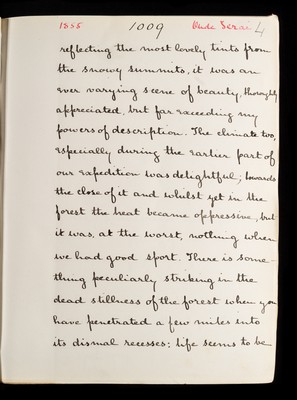 1855 1009 Bude Serai 4
reflecting the most lovely tints from
the snowy summits, it was an
ever varying scene of beauty, thoroughly
appreciated, but far exceeding my
powers of description. The climate too,
especially during the earlier part of
our expedition was delightful; towards
the close of it and whilst yet in the
forest the heat became oppressive, but
it was, at the worst, nothing when
we had good sport. There is some-
thing peculiarly striking in the
dead stillness of the forest when you
have penetrated a few miles into
its dismal recesses: life seems to be